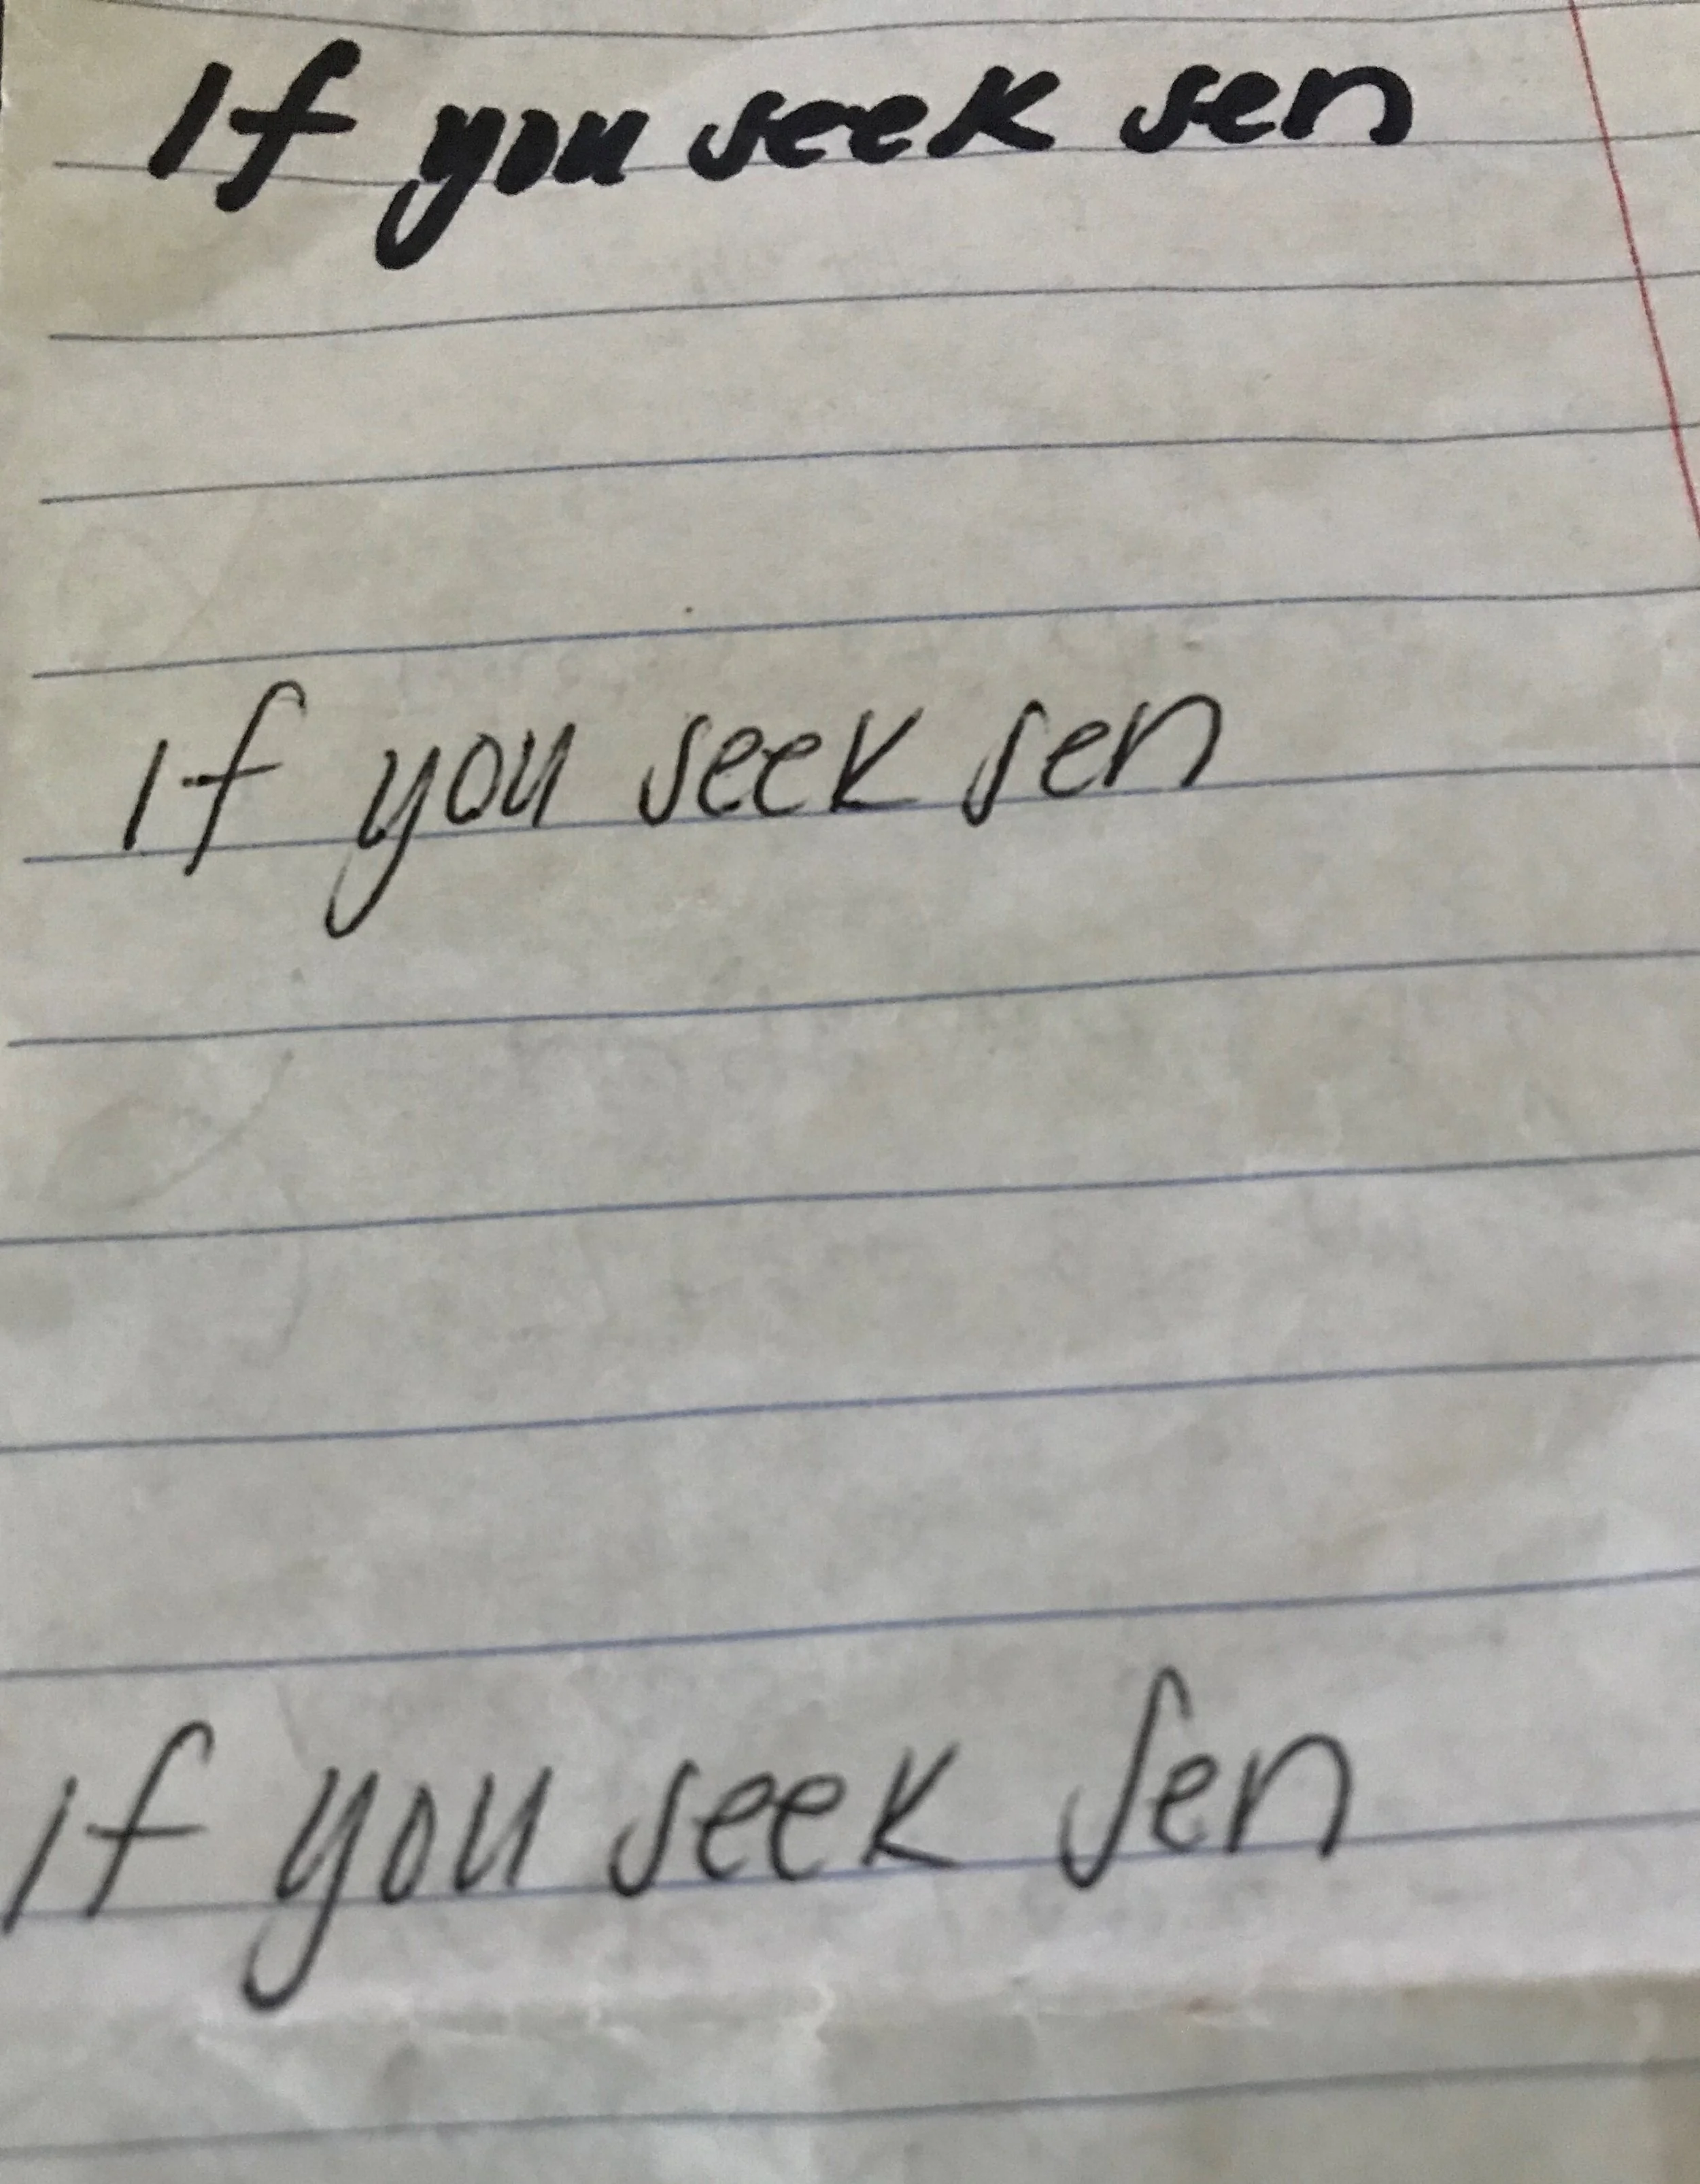 If you seek sen
If you seek sen
If you seek sen